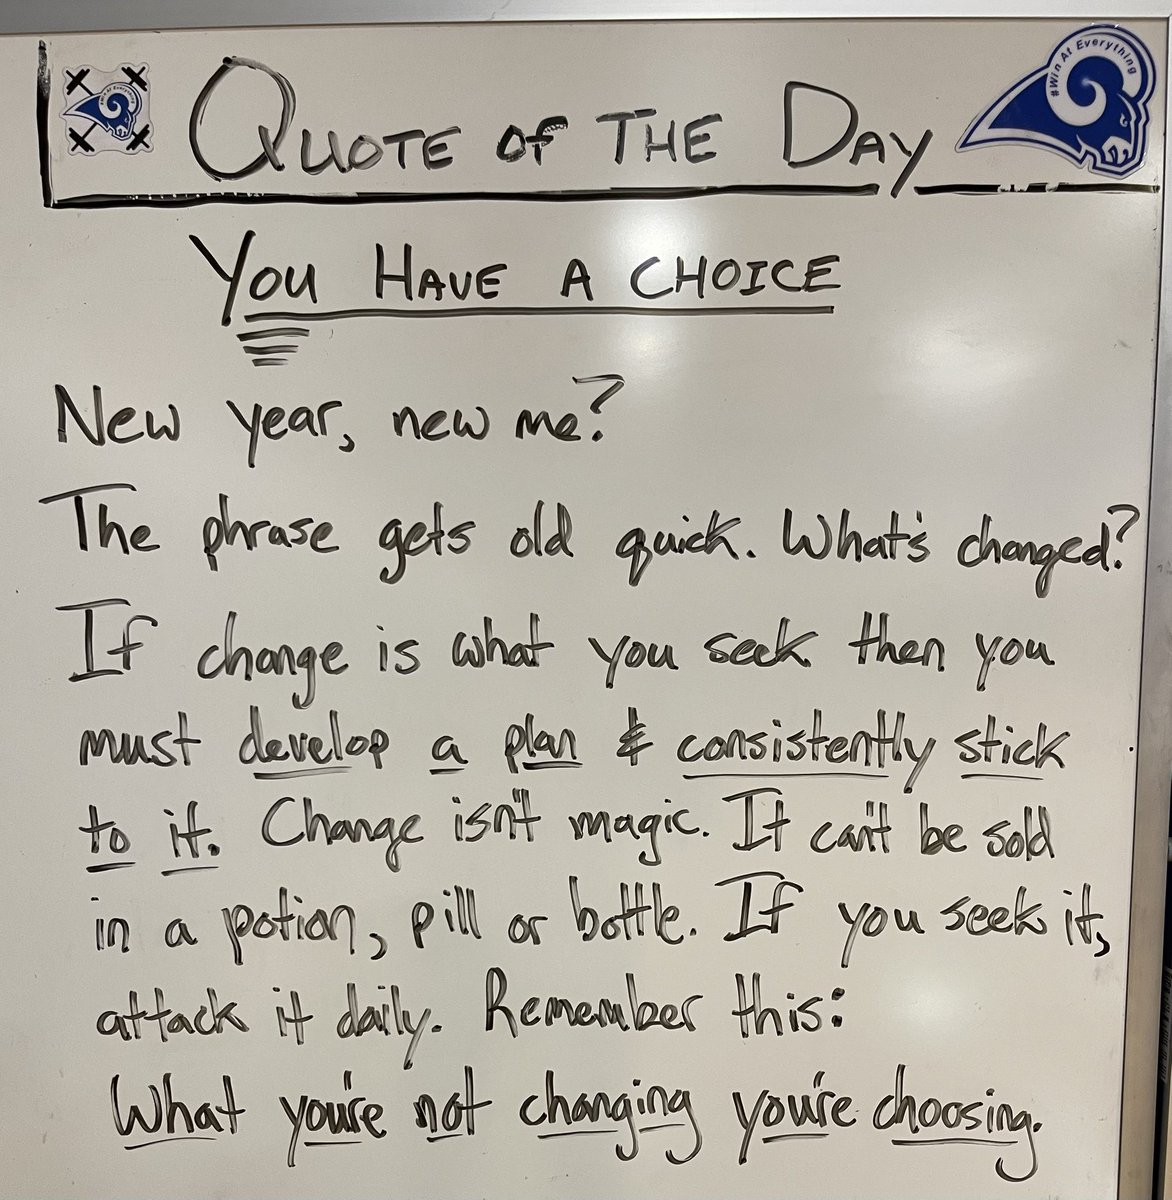 #Win At Everything
QUOTE OF THE DAY
#Win At Everything
YOU HAVE A CHOICE
New year, new me?
The phrase gets old quick. What's changed?
If change is what you seek then you
must develop a plan & consistently stick
to it. Change isn't magic. It can't be sold
in a potion, pill or bottle. If you seek it,
attack it daily. Remember this:
What you're not changing you're choosing.